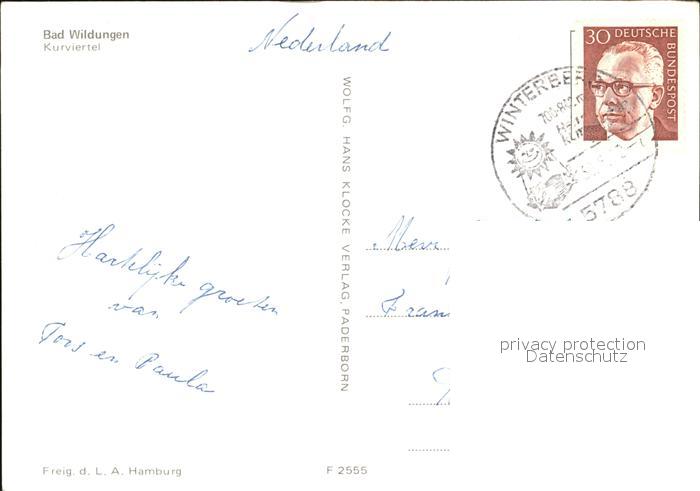 Bad Wildungen
Kurviertel
Nederland
30 DEUTSCHE
BUNDESPOST
WINTERBERG
5788
WOLFG. HANS KLOCKE VERLAG, PADERBORN
Hartelijke groeten
van
Toos en Paula
Mevr
Fran
privacy protection
Datenschutz
Freig. d. L. A. Hamburg
F 2555